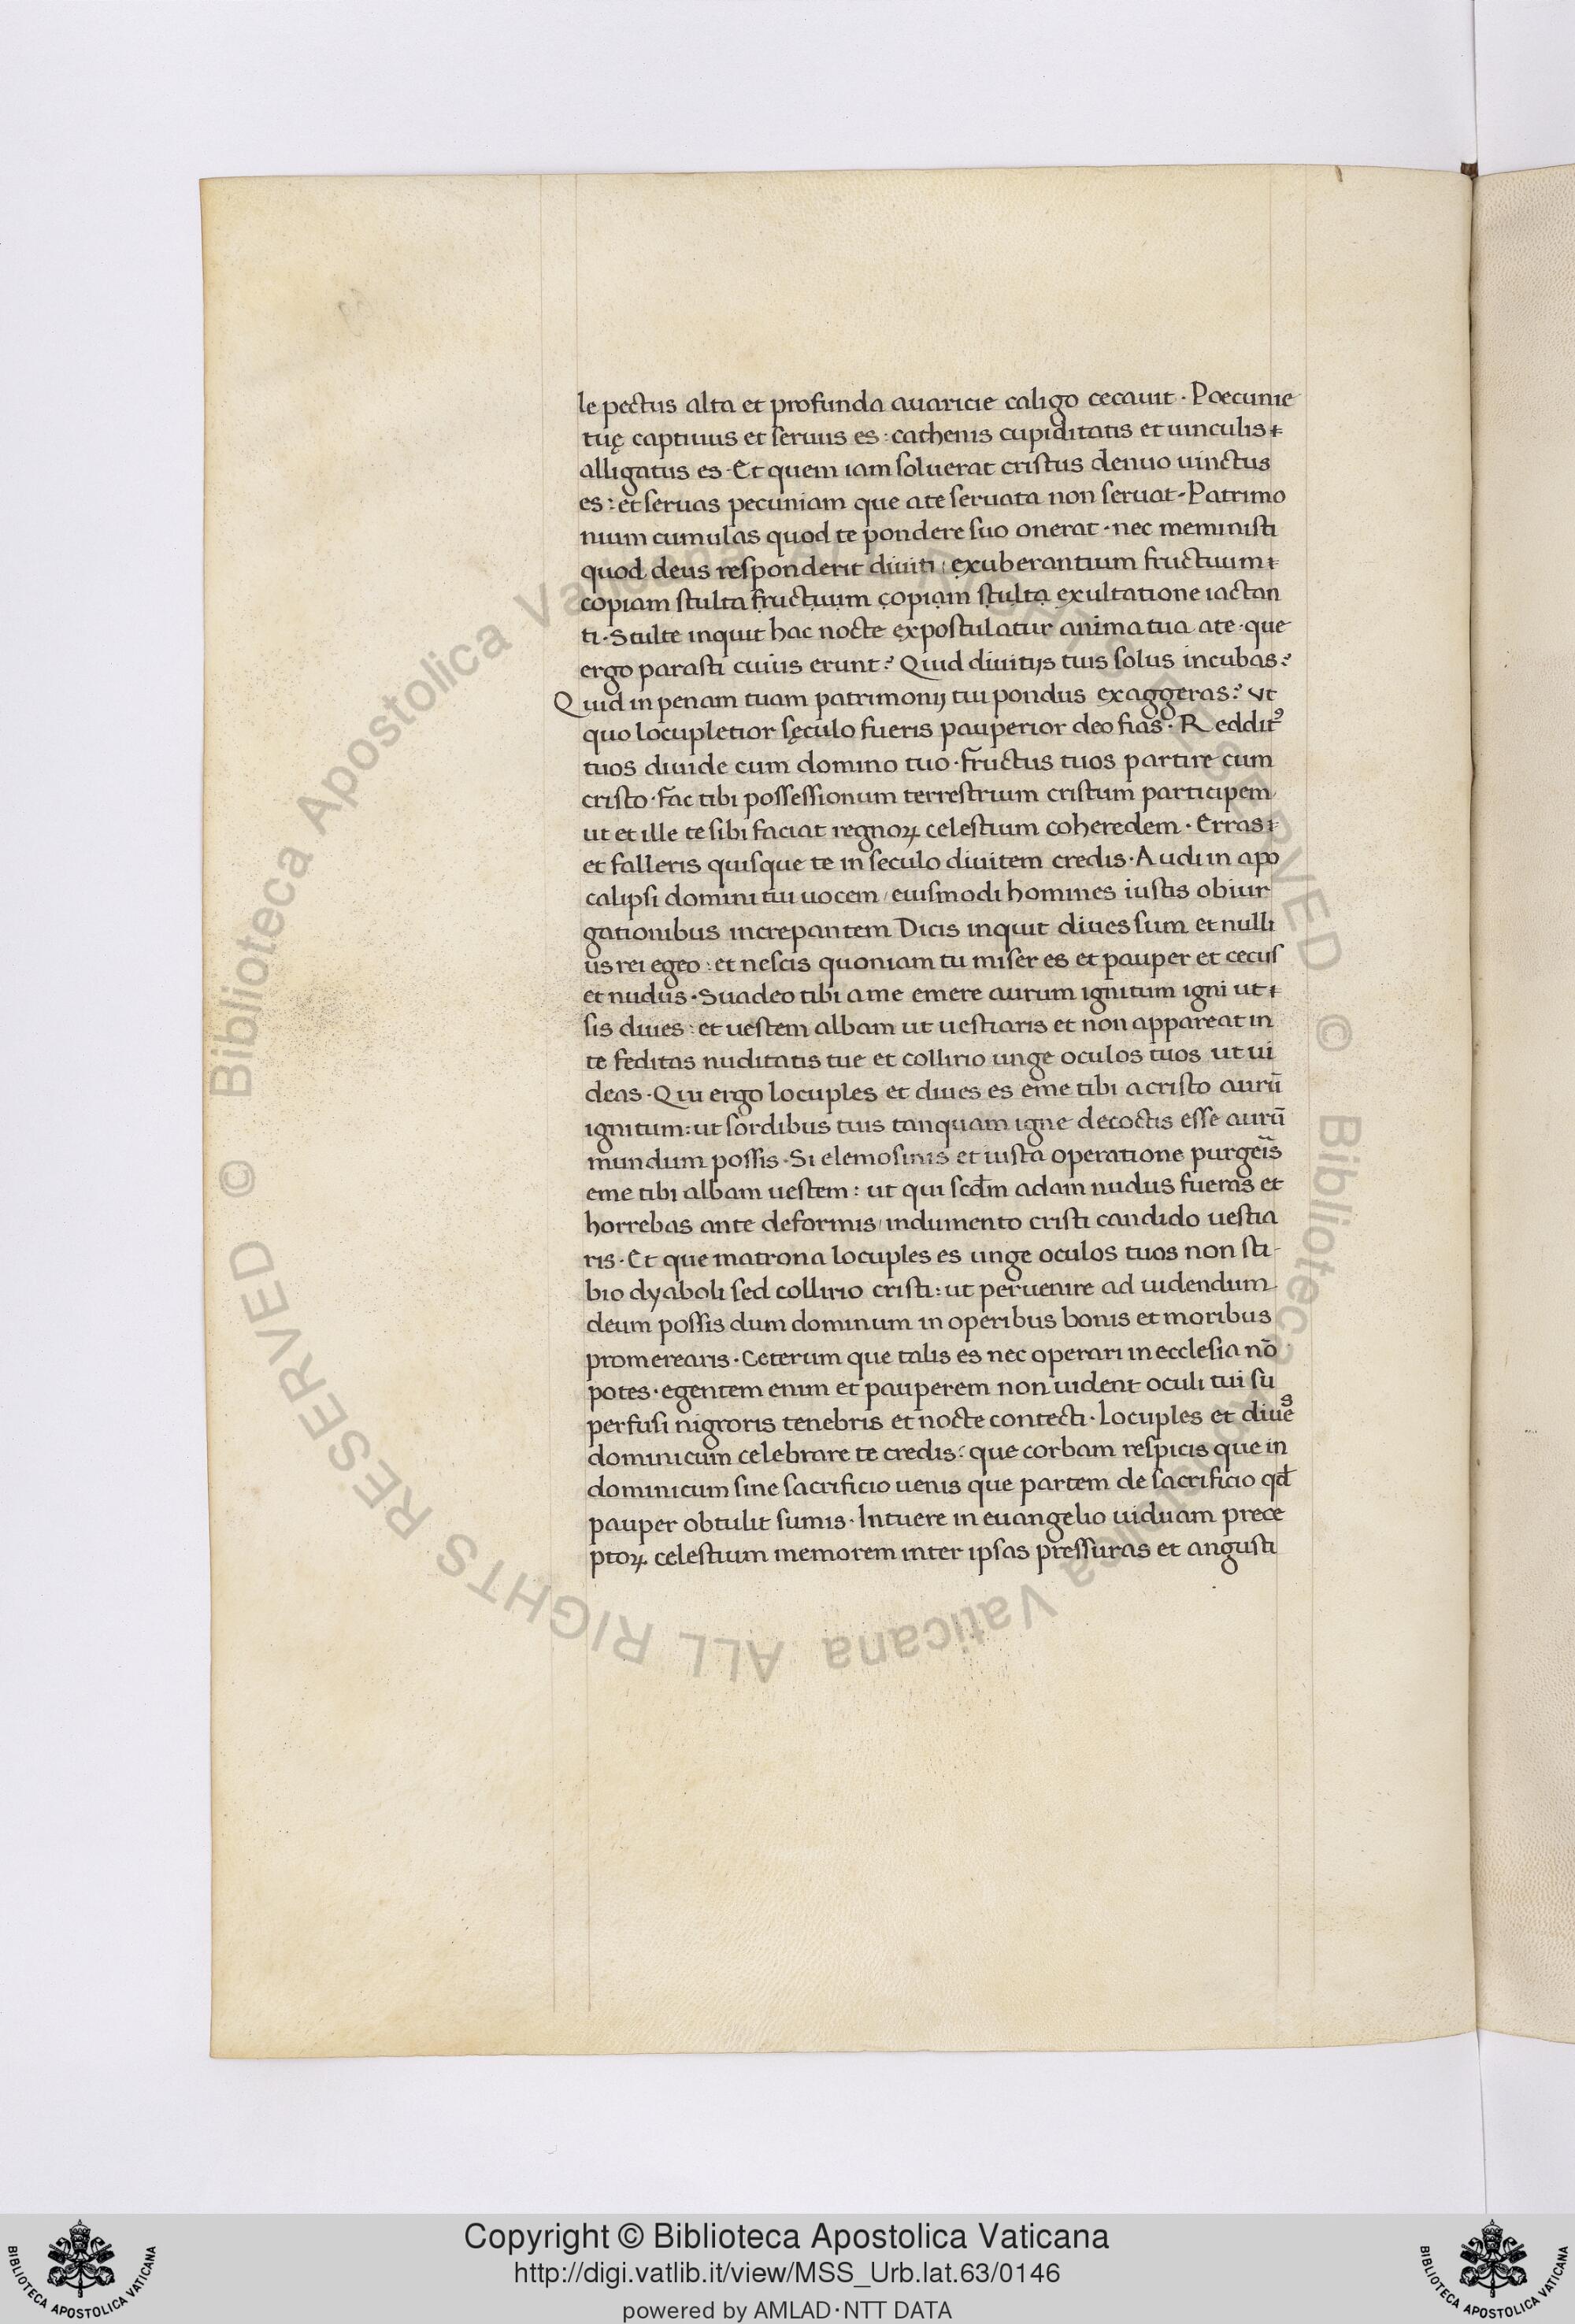 le pectus alta et profunda auaricie caligo cecauit · Poecunie
tuę captiuus et seruus es : cathenis cupiditatis et uinculis
alligatus es · Et quem iam soluerat cristus denuo uinctus
es : et seruas pecuniam que ate seruata non seruat · Patrimo
nium cumulas quod te pondere suo onerat · nec meministi
quod deus responderit diuiti / exuberantium fructuum
copiam stulta fructuum copiam stulta exultatione iactan
ti · Stulte inquit hac nocte expostulatur anima tua ate · que
ergo parasti cuius erunt ? Quid diuitijs tuis solus incubas ?
Quid in penam tuam patrimonij tui pondus exaggeras ? ut
quo locupletior sęculo fueris pauperior deo fias · Redditꝰ
tuos diuide cum domino tuo · fructus tuos partire cum
cristo · fac tibi possessionum terrestrium cristum participem
ut et ille te sibi faciat regnoꝝ celestium coheredem · Erras
et falleris quisque te in seculo diuitem credis · Audi in apo
calipsi domini tui uocem / eiusmodi homines iustis obiur
gationibus increpantem Dicis inquit diues sum et nulli
us rei egeo : et nescis quoniam tu miser es et pauper et cecus
et nudus · Suadeo tibi a me emere aurum ignitum igni ut
sis diues : et uestem albam ut uestiaris et non appareat in
te feditas nuditatis tue et collirio unge oculos tuos ut ui
deas · Qui ergo locuples et diues es eme tibi a cristo aurū
ignitum : ut sordibus tuis tanquam igne decoctis esse aurū
mundum possis · Si elemosinis et iusta operatione purgeīs
eme tibi albam uestem : ut qui scd̄m adam nudus fueras et
horrebas ante deformis / indumento cristi candido uestia
ris · Et que matrona locuples es unge oculos tuos non sti-
bio dyaboli sed collirio cristi : ut peruenire ad uidendum
deum possis dum dominum in operibus bonis et moribus
promerearis · Ceterum que talis es nec operari in ecclesia nō
potes · egentem enim et pauperem non uident oculi tui su
perfusi nigroris tenebris et nocte contecti · Locuples et diueˢ
dominicum celebrare te credis : que corbam respicis que in
dominicum sine sacrificio uenis que partem de sacrificio qđ
pauper obtulit sumis · Intuere in euangelio uiduam prece
ptoꝝ celestium memorem inter ipsas pressuras et angusti
© Biblioteca Apostolica Vaticana ALL RIGHTS RESERVED © Biblioteca Apostolica Vaticana ALL RIGHTS RESERVED
Copyright © Biblioteca Apostolica Vaticana
http://digi.vatlib.it/view/MSS_Urb.lat.63/0146
powered by AMLAD·NTT DATA
BIBLIOTECA APOSTOLICA VATICANA
BIBLIOTECA APOSTOLICA VATICANA